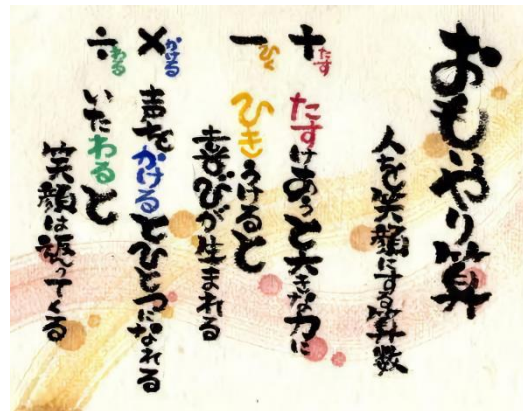 おもいやり算
人を笑顔にする算数
＋たす
たすけあうと大きな力に
－ひく
ひきうけると
喜びが生まれる
×かける
声をかけるとひとつになれる
÷わる
いたわると
笑顔は返ってくる